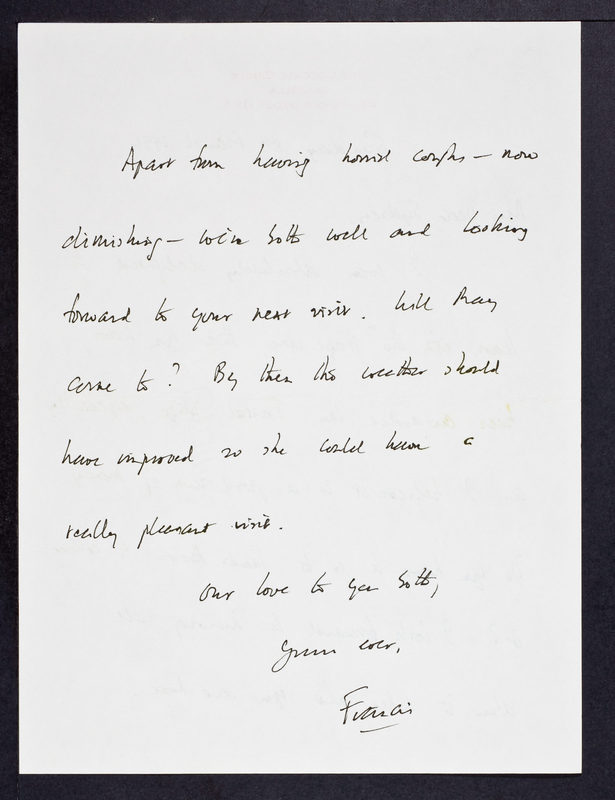 Apart from having horrid coughs — now
diminishing — we're both well and looking
forward to your next visit. Will May
come to? By then the weather should
have improved so she could have a
really pleasant visit.
Our love to you both,
Yours ever,
Francis